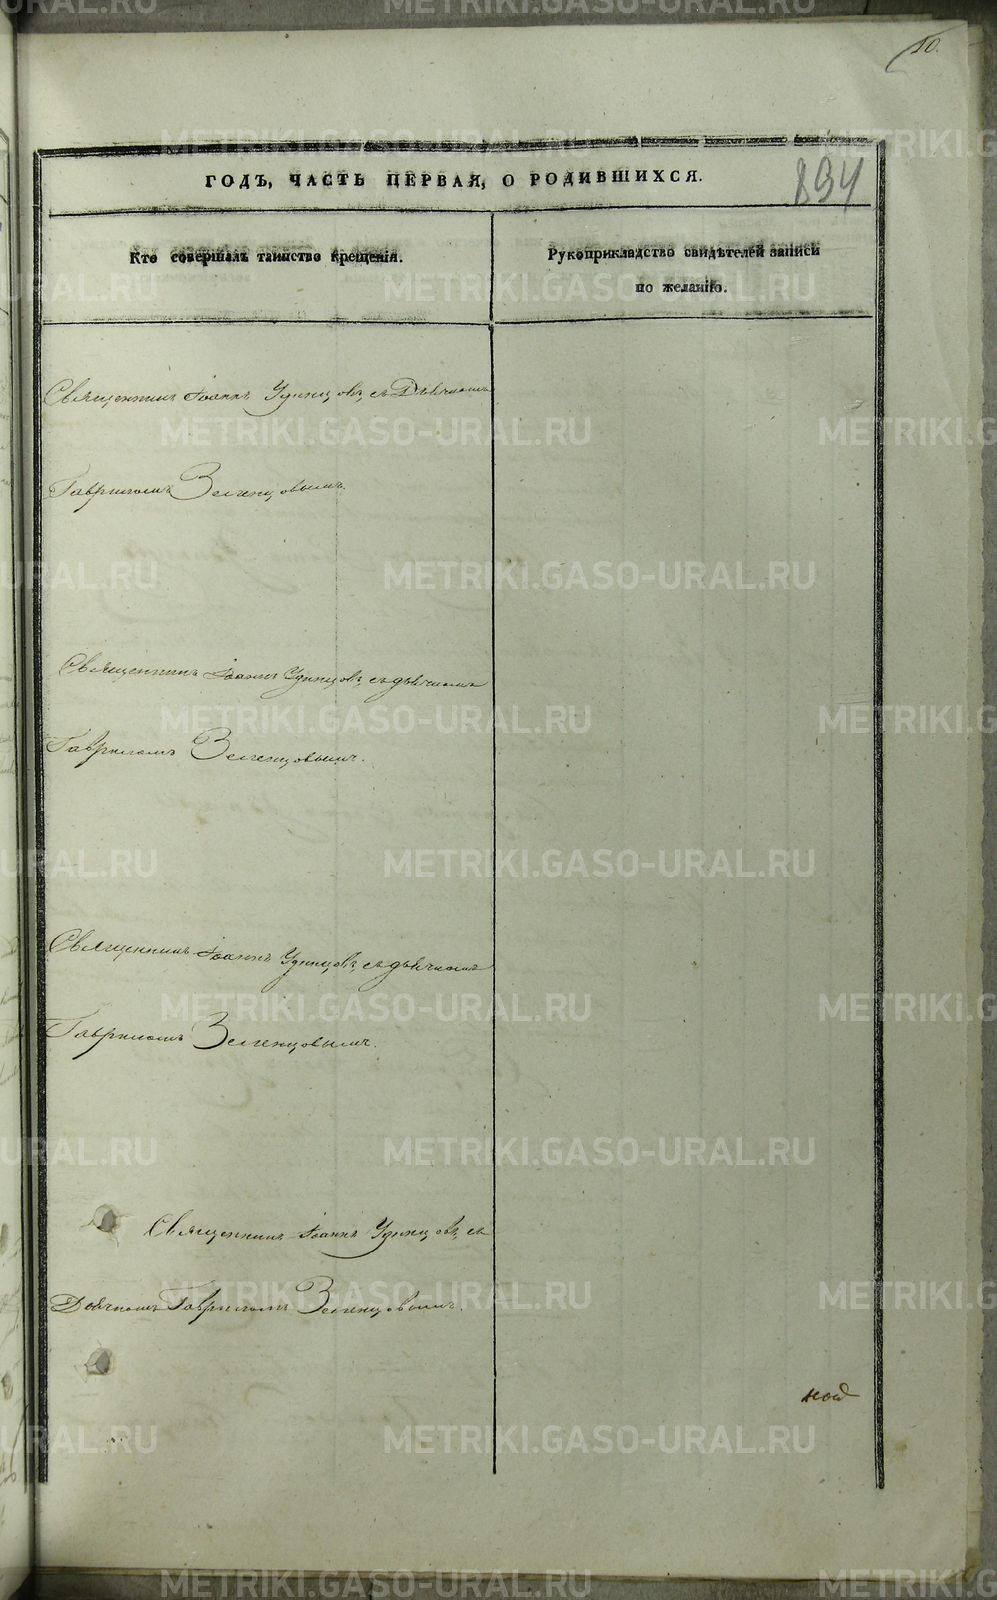 10.
ГОДЪ, ЧАСТЬ ПЕРВАЯ, О РОДИВШИХСЯ.
894
Кто совершалъ таинство крещенія.
Рукоприкладство свидѣтелей записи
по желанію.
Священникъ Іоаннъ Удинцовъ, съ Дьячкомъ
Гавриломъ Зеленцовымъ.
Священникъ Іоаннъ Удинцовъ, съ дьячкомъ
Гавриломъ Зеленцовымъ.
Священникъ Іоаннъ Удинцовъ, съ дьячкомъ
Гавриломъ Зеленцовымъ.
Священникъ Іоаннъ Удинцовъ, съ
Дьячкомъ Гавриломъ Зеленцовымъ.
METRIKI.GASO-URAL.RU